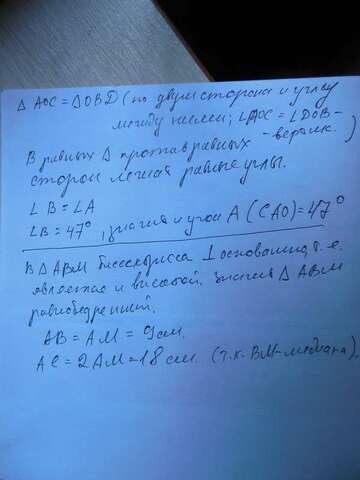 Δ АОС = ΔОВД (по двум сторонам и углу
между ними; ∠АОС = ∠DОВ -
- вертик. )
В равных Δ против равных
сторон лежат равные углы.
∠ В = ∠А
∠В = 47°, значит и угол А (САО) = 47°
В Δ АВМ биссектриса ⊥ основанию, т. е.
является и высотой. Значит Δ АВМ
равнобедренный.
АВ = АМ = 9 см.
АС = 2АМ = 18 см. (т.к. ВМ - медиана).